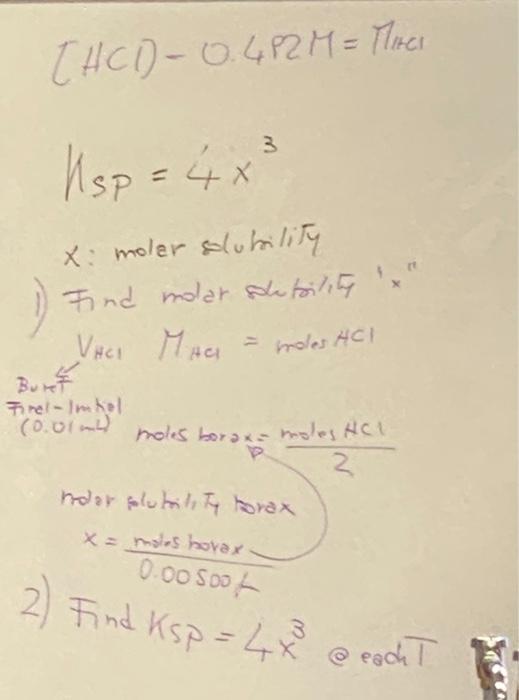 [HCl] - 0.482M = MHCl
Ksp = 4x³
x: molar solubility
1) Find molar solubility "x"
VHCl MHCl = moles HCl
Buret
Final-Initial
(0.01mL)
moles borax = moles HCl
2
molar solubility borax
x = moles borax
0.00500L
2) Find Ksp = 4x³ @ each T